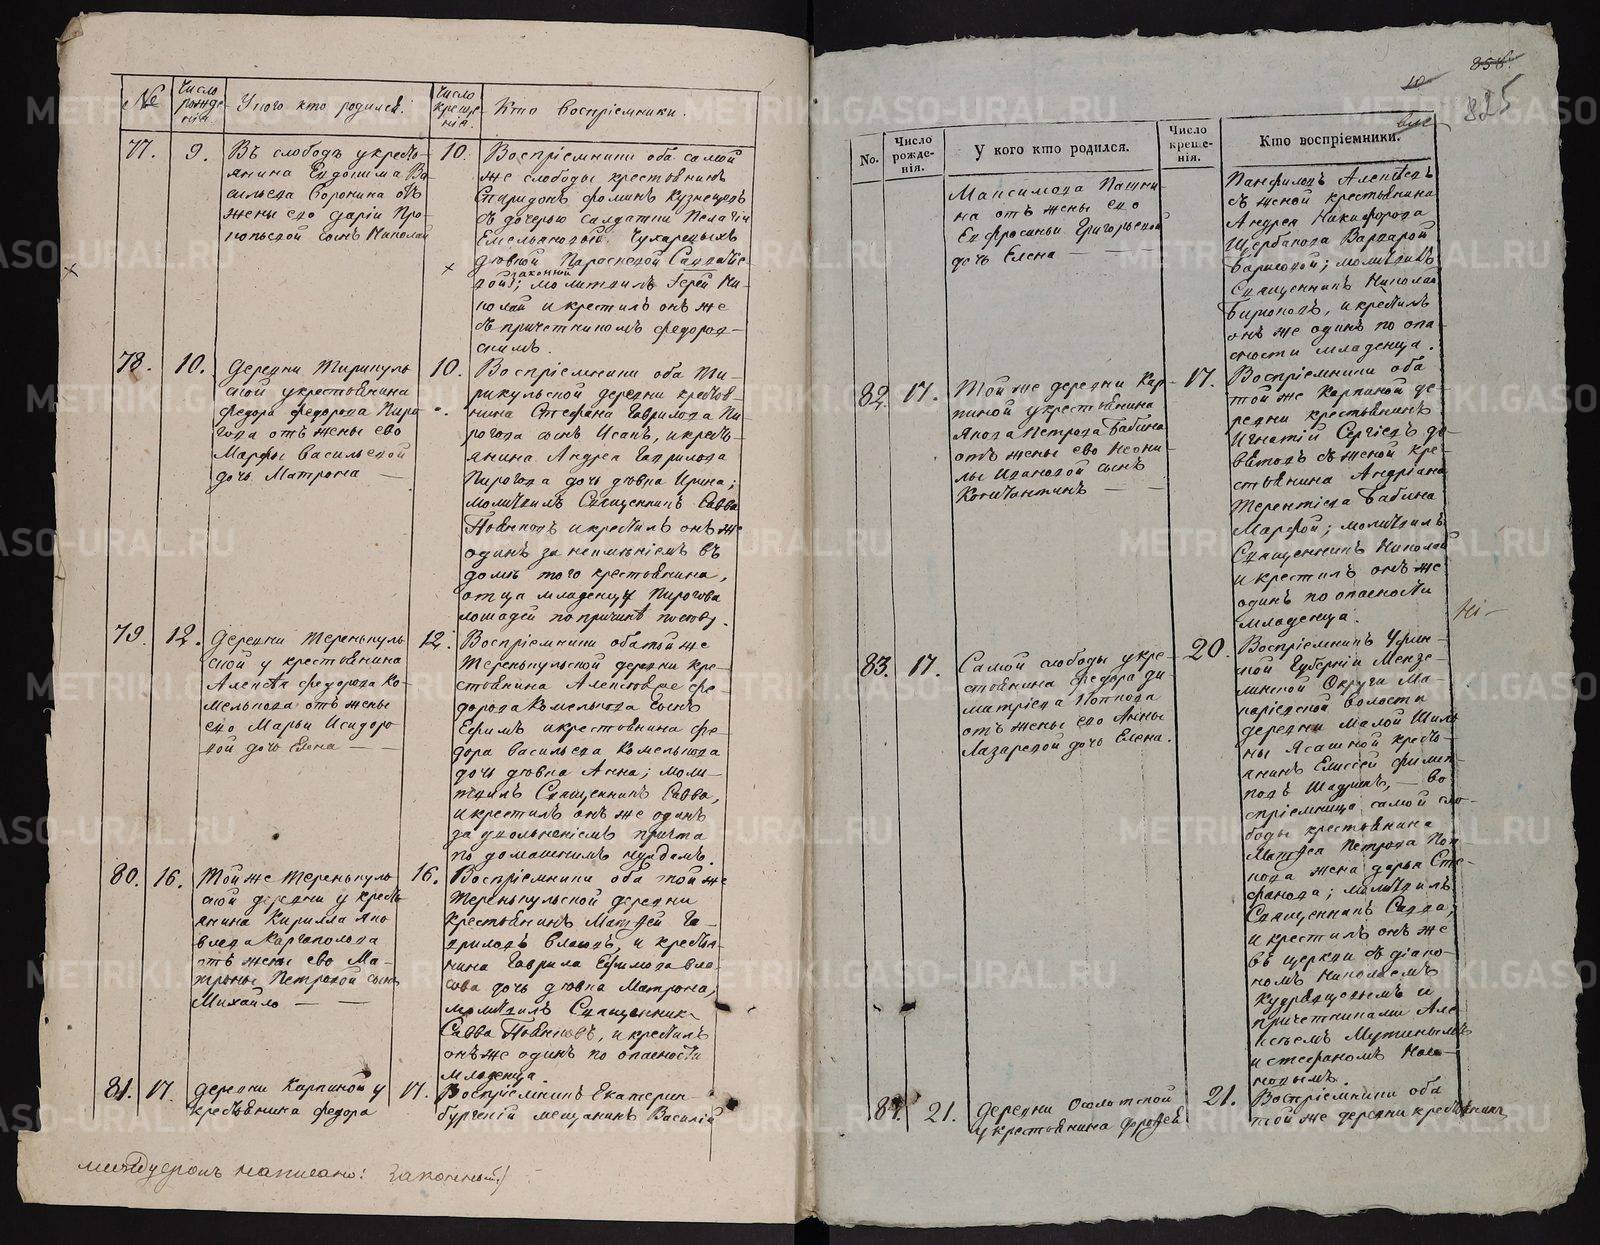 №
Число рожде-нія.
У кого кто родился.
Число креще-нія.
Кто воспріемники.
77.
9.
Въ слободѣ у кресть-
янина Евдокима Ва-
сильева Воронина отъ
жены его Дарьи Про-
копьевой сынъ Николай
10.
Воспріемники оба самой
же слободы крестьянинъ
Спиридонъ Фоминъ Кузнецовъ
съ дочерью солдатки Пелагіи
Емельяновой
дѣвкой Парасковой
законный
молитвилъ Іерей Ни-
колай и крестилъ онъ же
съ причетникомъ Федоров-
скимъ.
78.
10.
Деревни Тирикуль
ской у крестьянина
Федора Федорова Пиро-
гова отъ жены его
Марфы Васильевой
дочь Матрона —
10.
Воспріемники оба Ти-
рикульской деревни кресть-
янина Стефана Гаврилова Пи-
рогова сынъ Исакъ, и кресть-
янина Андрея Гаврилова
Пирогова дочь дѣвка Ирина;
молитвилъ Священникъ Савва
и крестилъ онъ же
одинъ за неимѣніемъ въ
домѣ того крестьянина,
отца младенцу Пирогова
лошадей по причинѣ посѣву.
79.
12.
Деревни Теренькуль
ской у крестьянина
Алексѣя Федорова Ко-
мелькова отъ жены
его Марьи Исидоро
вой дочь Елена — —
12.
Воспріемники оба той же
Теренькульской деревни кре-
стьянина Фе-
дорова Комелькова сынъ
Ефимъ и крестьянина Фе-
дора Васильева Комелькова
дочь дѣвка Анна; моли-
твилъ Священникъ Савва,
и крестилъ онъ же одинъ
за увольненіемъ причта
по домашнимъ нуждамъ.
80.
16.
Той же Теренькуль
ской деревни у кресть
янина Кирилла Яко
влева Каргаполова
отъ жены его Ма-
троны Петровой сынъ
Михайло — —
16.
Воспріемники оба той же
Теренькульской деревни
крестьянинъ Матвей Га-
вриловъ Власовъ, и крестья-
нина Гаврила Ефимова Вла-
сова дочь дѣвка Матрона,
молитвилъ Священникъ
Савва и крестилъ
онъ же одинъ по опасности
младенца.
81.
17.
Деревни Карпиной у
крестьянина Федора
17.
Воспріемникъ Екатерин-
бургскій мещанинъ Василій
между строкъ написано: законный
858
10
825
No.
Число рожде-нія.
У кого кто родился.
Число креще-нія.
Кто воспріемники.
Максимова Пашки-
на отъ жены его
Евфросиньи Григорьевой
дочь Елена — —
Панфиловъ Алексѣевъ
съ женой крестьянина
Андрея Никифорова
Щербакова Варварой
молитвилъ
Священникъ Николай
Бирюковъ, и крестилъ
онъ же одинъ по опа-
сности младенца.
82.
17.
Той же деревни Кар-
пиной у крестьянина
Якова Петрова Бабина
отъ жены его Неони-
лы Ивановой сынъ
Константинъ — —
17.
Воспріемники оба
той же Карпиной де-
ревни крестьянинъ
Игнатій Сергіевъ
съ женой кре-
стьянина Андріана
Терентіева Бабина
Марфой; молитвилъ
Священникъ Николай
и крестилъ онъ же
одинъ по опасности
младенца.
83.
17.
Самой слободы у кре-
стьянина Федора Ди
митріева Попкова
отъ жены его Анны
Лазаревой дочь Елена.
20.
Воспріемникъ Уфим-
ской Губерніи Мензе-
линской Округи Ма-
каріевской волости
деревни Малой Шиль
ны Ясашной кресть-
янинъ Елисей Филип-
повъ — во
спріемница самой сло-
боды крестьянина
Матвея Петрова Поп-
кова жена Дарья Сте-
фанова; молитвилъ
Священникъ Савва,
и крестилъ онъ же
въ церкви съ діако-
номъ Николаемъ
Кудрявцевымъ и
причетниками Але-
ксѣемъ Мутинымъ
и Стефаномъ
84.
21.
Деревни Окольской
у крестьянина
21.
Воспріемники оба
той же деревни крестьянинъ